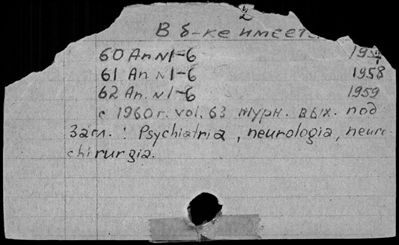 2
В б-ке имеетс
60 An. N1-6 1957
61 An. N1-6 1958
62 An. N1-6 1959
с 1960 г. vol. 63 журн. вых. под
Загл.: Psychiatria, neurologia, neuro
chirurgia.